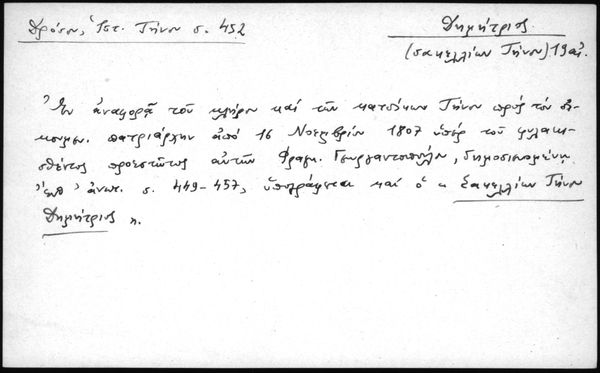 Δρόσου, Ἱστ. Τήνου σ. 452
Δημήτριος
(σακελλίων Τήνου) 19 αἰ.
Ἐν ἀναφορᾷ τοῦ κλήρου καὶ τῶν κατοίκων Τήνου πρὸς τὸν οἰ-
κουμεν. πατριάρχην ἀπὸ 16 Νοεμβρίου 1807 ὑπὲρ τοῦ φυλακι-
σθέντος προεστῶτος αὐτῶν Φραγ. Γεωργαντοπούλου, δημοσιευομένῃ
ἀνωτ. σ. 449-457, ὑπογράφεται καὶ ὁ « Σακελλίων Τήνου
Δημήτριος ».